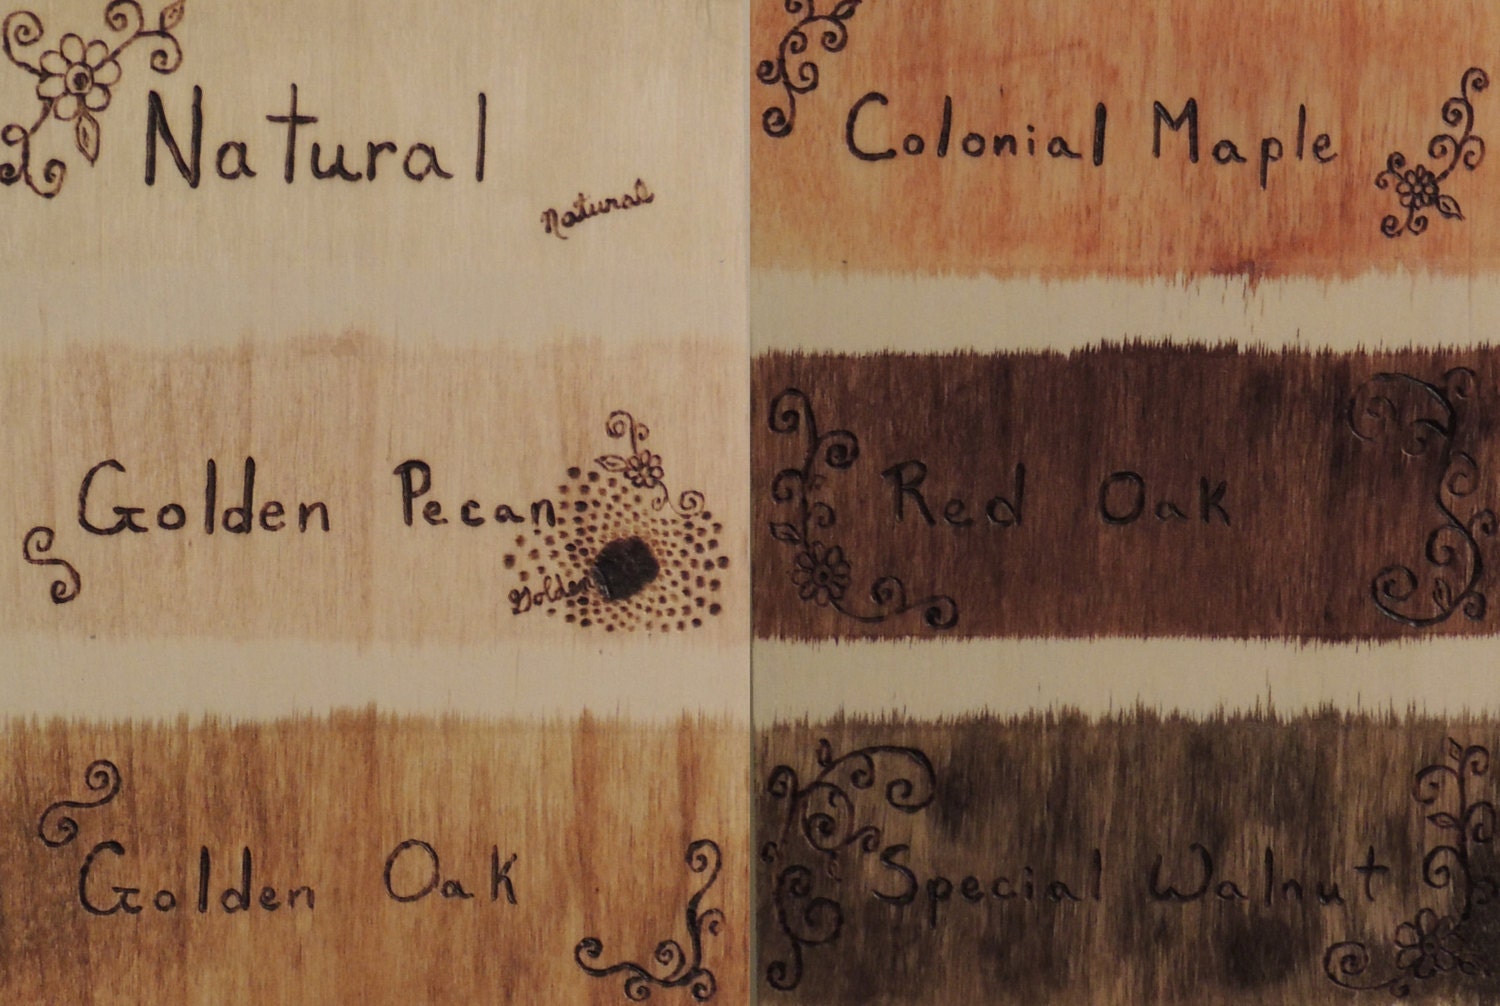 Natural
Natural
Golden Pecan
Golden
Golden Oak
Colonial Maple
Red Oak
Special Walnut